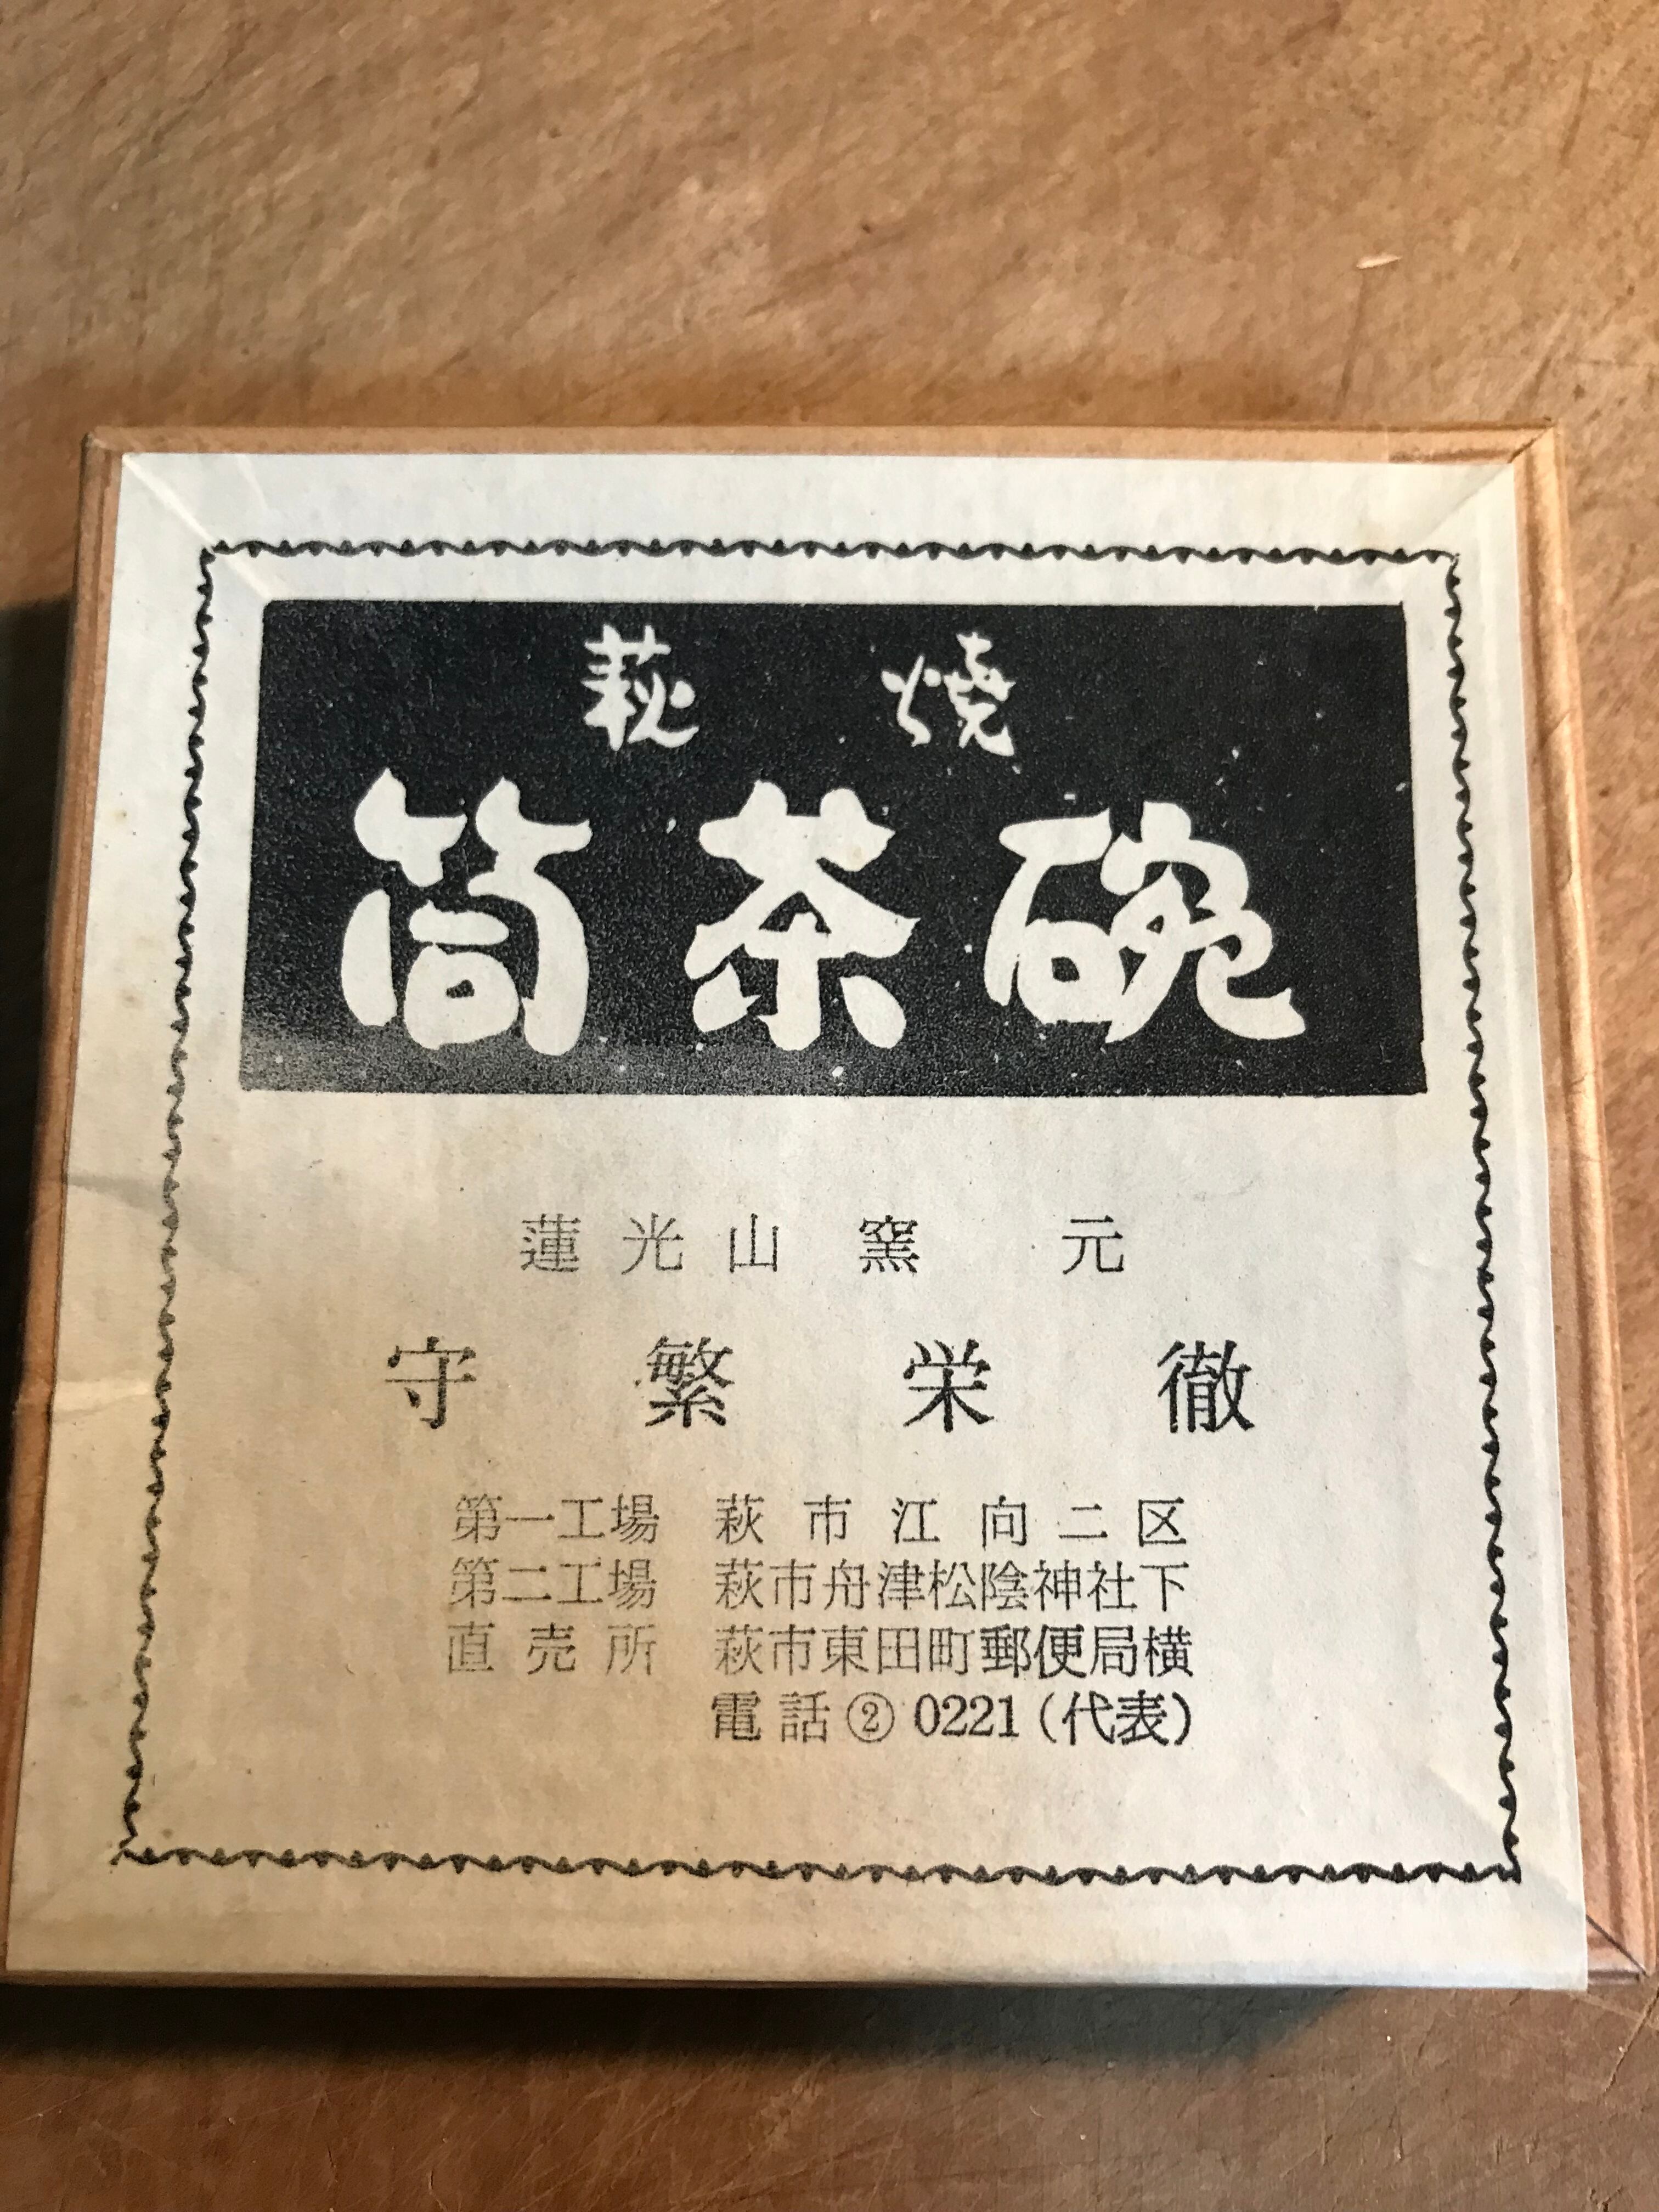 萩焼
筒茶碗
蓮光山窯元
守繁栄徹
第一工場 萩市江向二区
第二工場 萩市舟津松陰神社下
直売所 萩市東田町郵便局横
電話② 0221(代表)